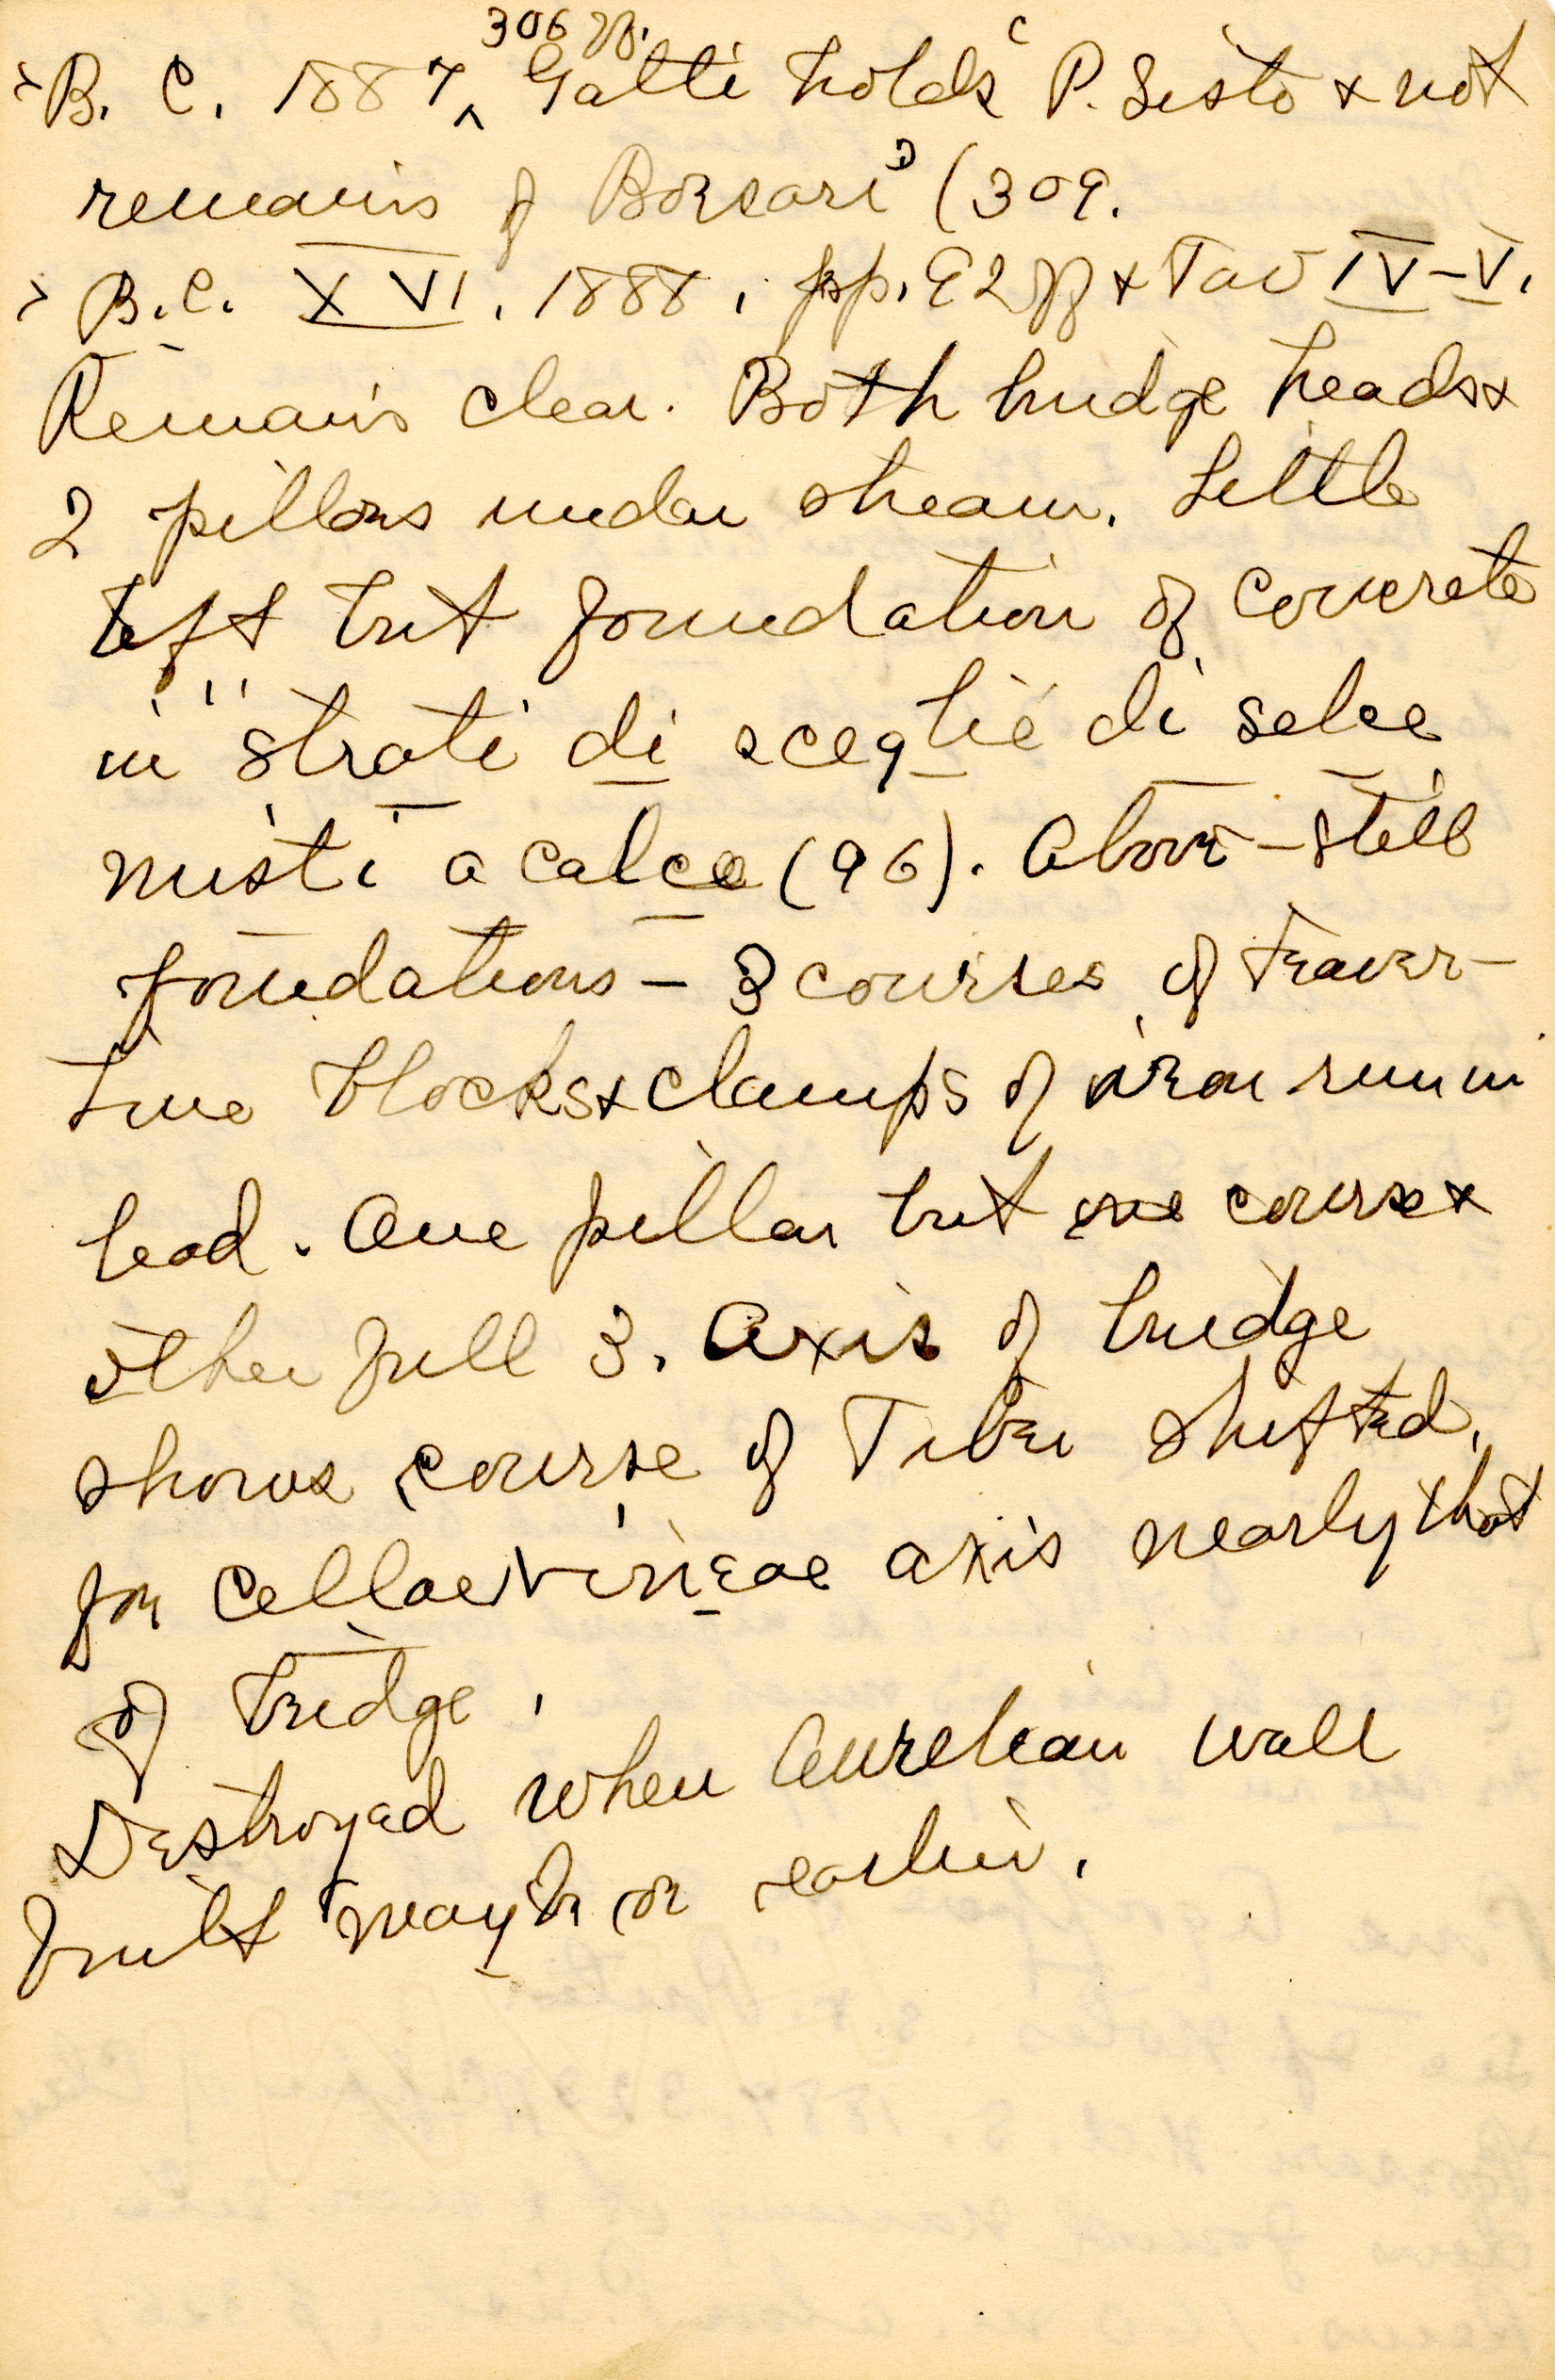 B. C. 1887, 306 ff. Gatti holds P. Sisto & not
remains of Borsari (309.
B.C. XVI. 1888, pp. 92 ff & Tav IV–V.
Remains clear. Both bridge heads &
2 pillars under stream. Little
left but foundation of concrete
in "strati di sceglie di selce
misti a calce (96). Above – still
foundations – 3 courses of traver-
tine blocks & clamps of iron run in
lead. One pillar but one course &
other full 3. Axis of bridge
shows course of Tiber shifted,
for cellae vineae axis nearly that
of bridge.
Destroyed when Aurelian wall
built maybe or earlier.